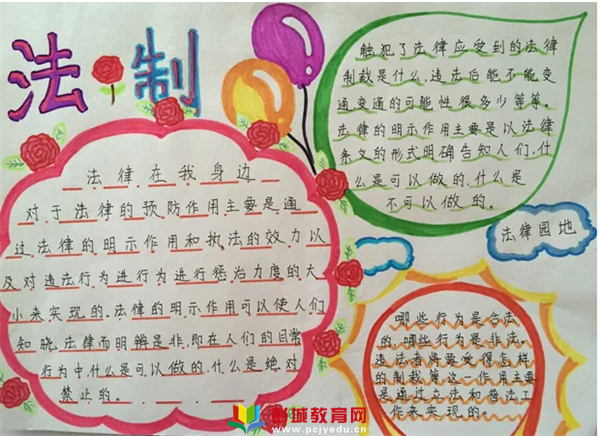 法制
法律在我身边
对于法律的预防作用主要是通
过法律的明示作用和执法的效力以
及对违法行为进行为进行惩治力度的大
小来实现的.法律的明示作用可以使人们
知晓.法律而明辨是非,即在人们的日常
行为中.什么是可以做的.什么是绝对
禁止的。
触犯了法律应受到的法律
制裁是什么,违法后能不能变
通变通的可能性很多少等等。
法律的明示作用主要是以法律
条文的形式明确告知人们,什
么是可以做的.什么是
不可以做的。
法律园地
哪些行为是合法
的.哪些行为是非法.
违法者将要受得怎样
的制裁等这一作用主要
是通过立法和普法工
作来实现的。
彭城教育网
www.pcjyedu.cn